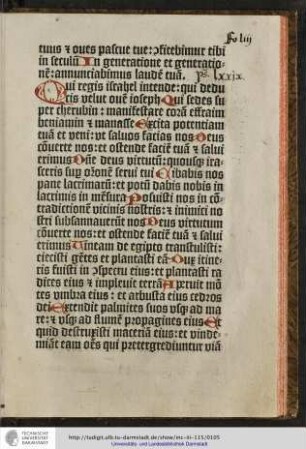 Fo liij
tuus ⁊ oues pascue tue: ꝯfitebimur tibi
in seculū In generatione et generatio-
nē: annunciabimus laudē tuā. ps. lxxix.
Qui regis israhel intende: qui dedu
cis velut ouē ioseph Qui sedes su
per cherubin: manifestare corā effraim
beniamin ⁊ manasse Excita potentiam
tuā et veni: vt saluos facias nos Deus
cōuerte nos: et ostende faciē tuā ⁊ salui
erimus Dñe deus virtutū: quousqꝫ ira-
sceris suꝑ orōnē serui tui Cibabis nos
pane lacrimarū: et potū dabis nobis in
lacrimis in mēsura Posuisti nos in cō-
tradictionē vicinis nostris: ⁊ inimici no
stri subsannauerūt nos Deus virtutum
cōuerte nos: et ostende faciē tuā ⁊ salui
erimus Uineam de egipto transtulisti:
eiecisti gētes et plantasti eā Dux itine-
ris fuisti in ꝯspectu eius: et plantasti ra
dices eius ⁊ impleuit terrā Aperuit mō
tes vmbra eius: et arbusta eius cedros
dei Extendit palmites suos vsqꝫ ad ma
re: ⁊ vsqꝫ ad flumē propagines eius Et
quid destruxisti maceriā eius: et vinde-
miāt eam oēs qui pretergrediuntur viā
TECHNISCHE
UNIVERSITÄT
DARMSTADT
http://tudigit.ulb.tu-darmstadt.de/show/inc-iii-125/0105
Universitäts- und Landesbibliothek Darmstadt